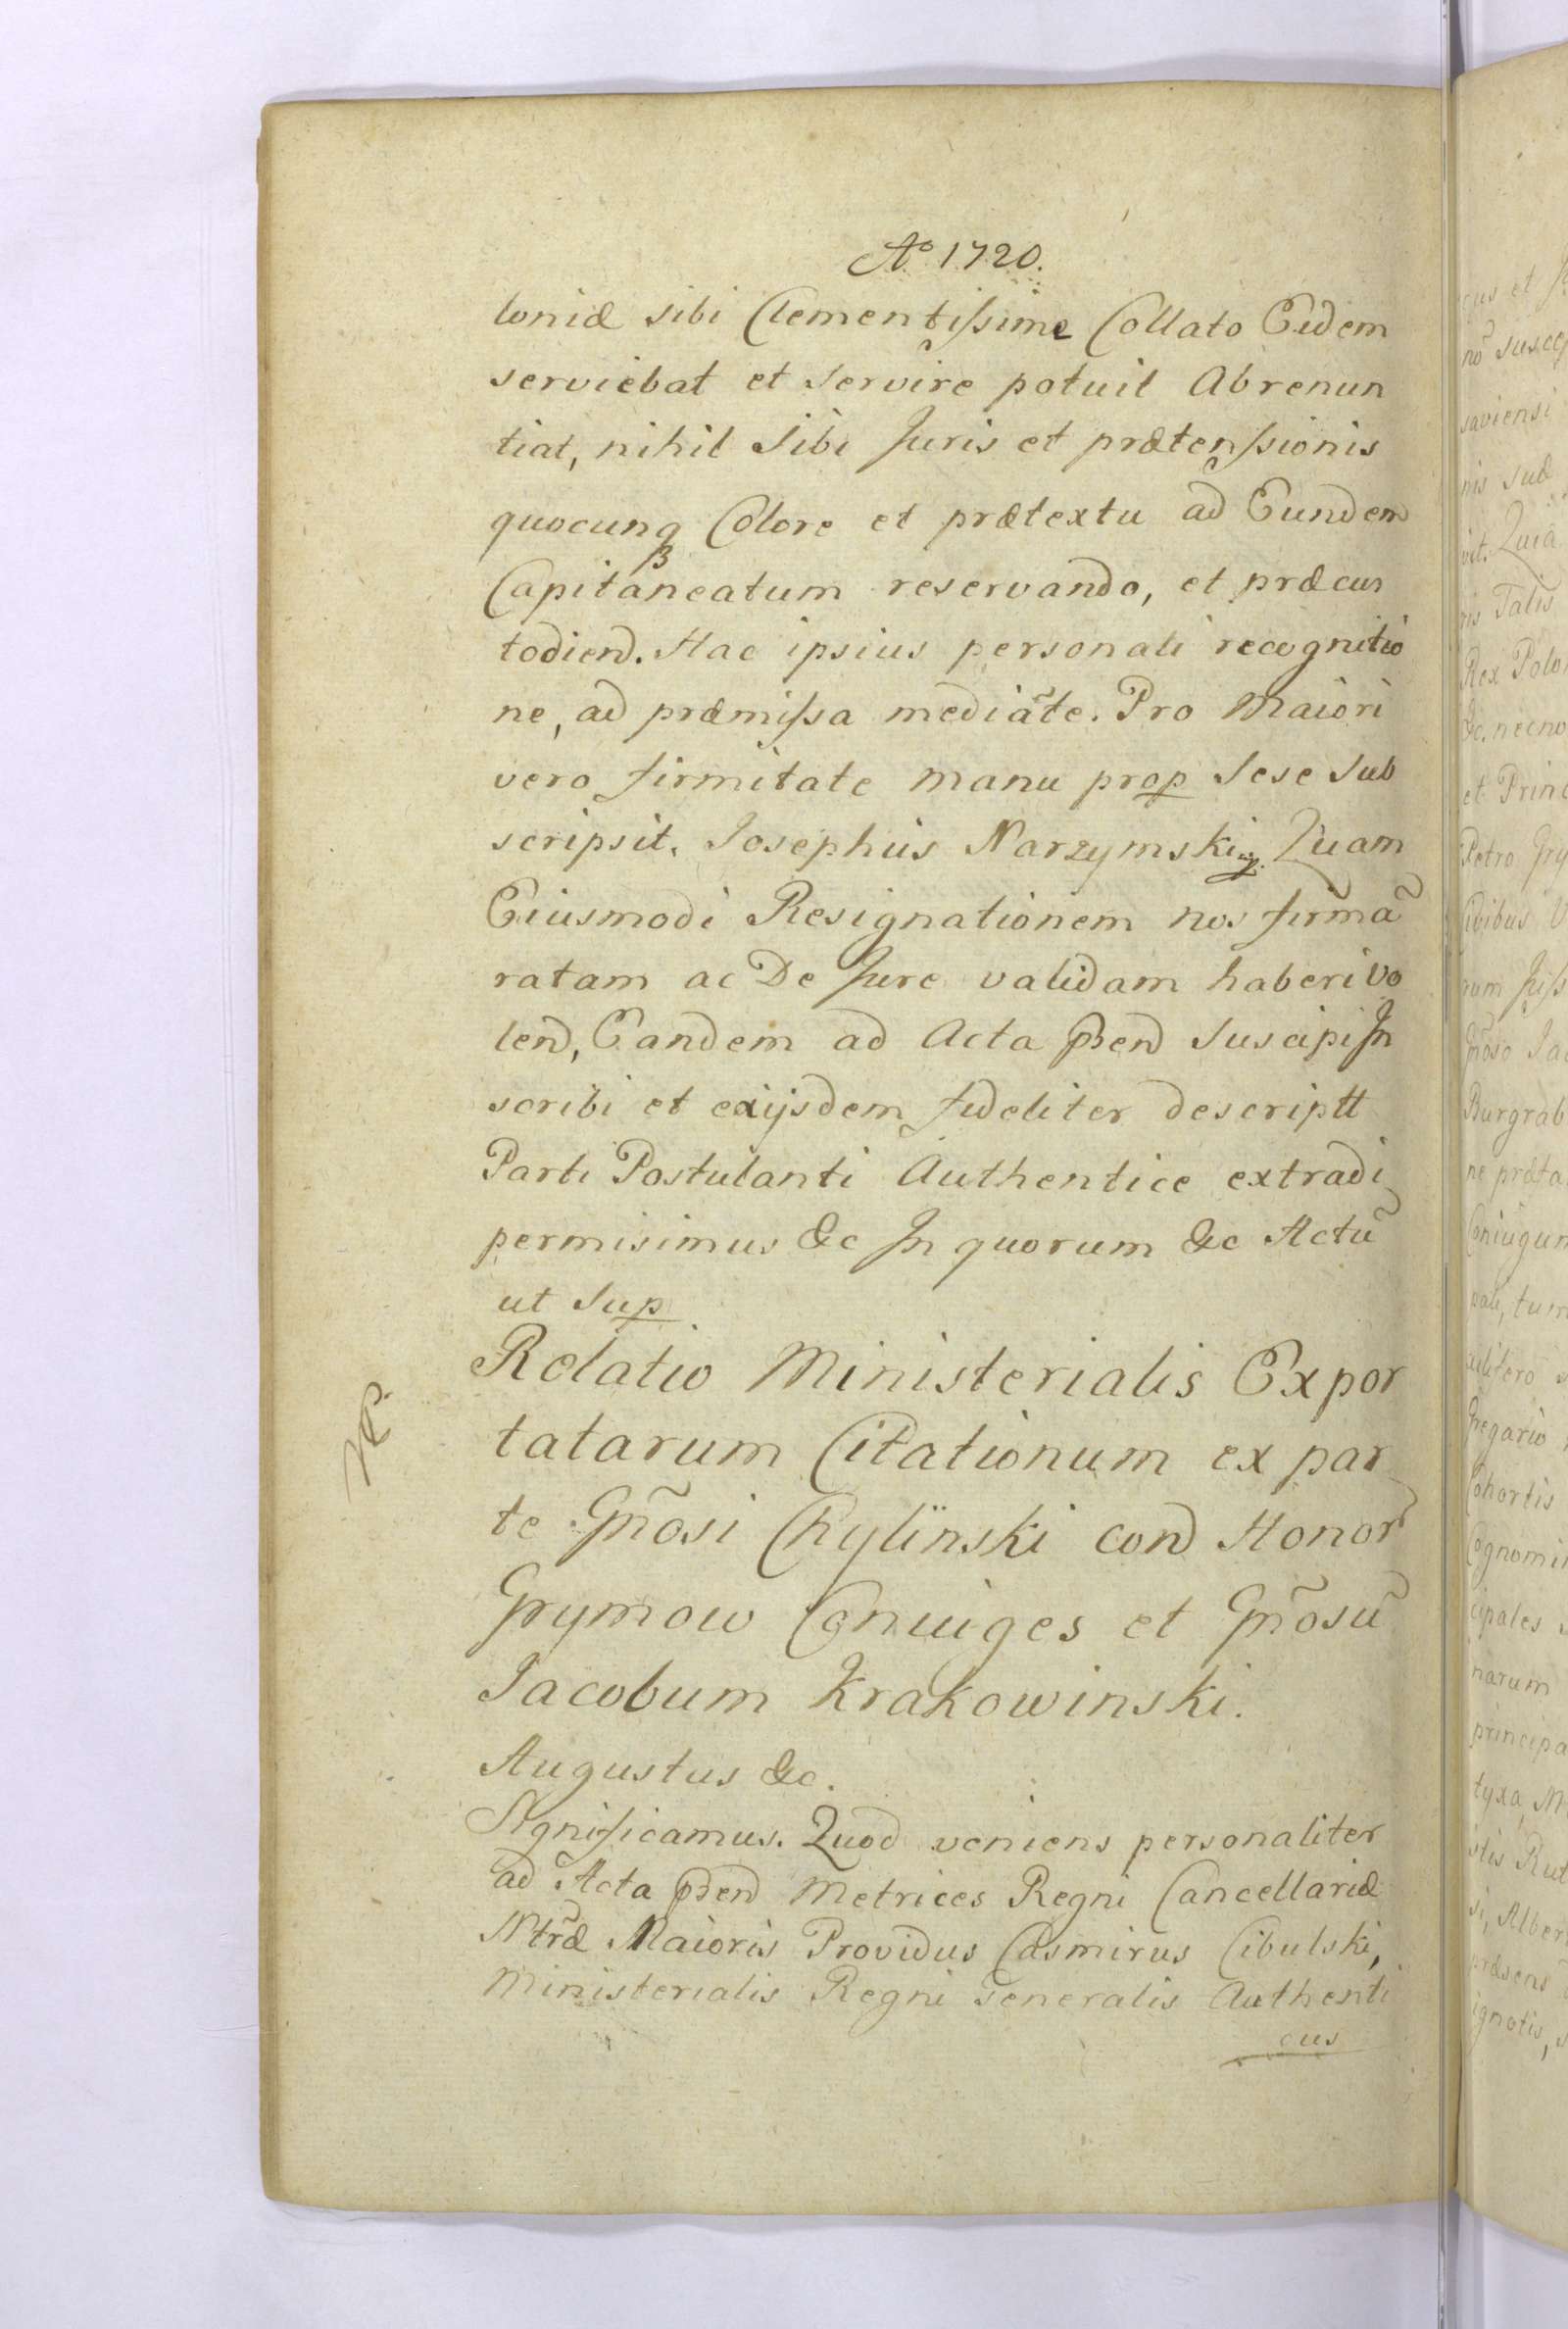 Aº 1720.
loniæ sibi Clementissime Collato Eidem
serviebat et servire potuit Abrenun
tiat, nihil sibi Juris et prætenssionis
quocunq Colore et prætextu ad Eundem
Capitaneatum reservando, et præcus
todiend. Hac ipsius personali recognitio
ne, ad præmissa mediãte. Pro Maiori
vero firmitate manu prop sese sub
scripsit. Josephus Narzymski Quam
Eiusmodi Resignationem nos firmã
ratam ac De Jure validam haberi vo
lend, Eandem ad Acta pßend Suscipi Jn
scribi et exijsdem fideliter descriptt
Parti Postulanti Authentice extradi
permisimus &c Jn quorum &c Actũ
ut Sup
NP.
Relatio Ministerialis Expor
tatarum Citationum ex par
te Gñosi Chyliński cond Honor
Grymow Coniuges et Gñosũ
Jacobum Krakowinski.
Augustus &c.
Significamus. Quod veniens personaliter
ad Acta pßend Metrices Regni Cancellariæ
Ntræ̃ Maioris Providus Casmirus Cibulski,
Ministerialis Regni Generalis Authenti
cus